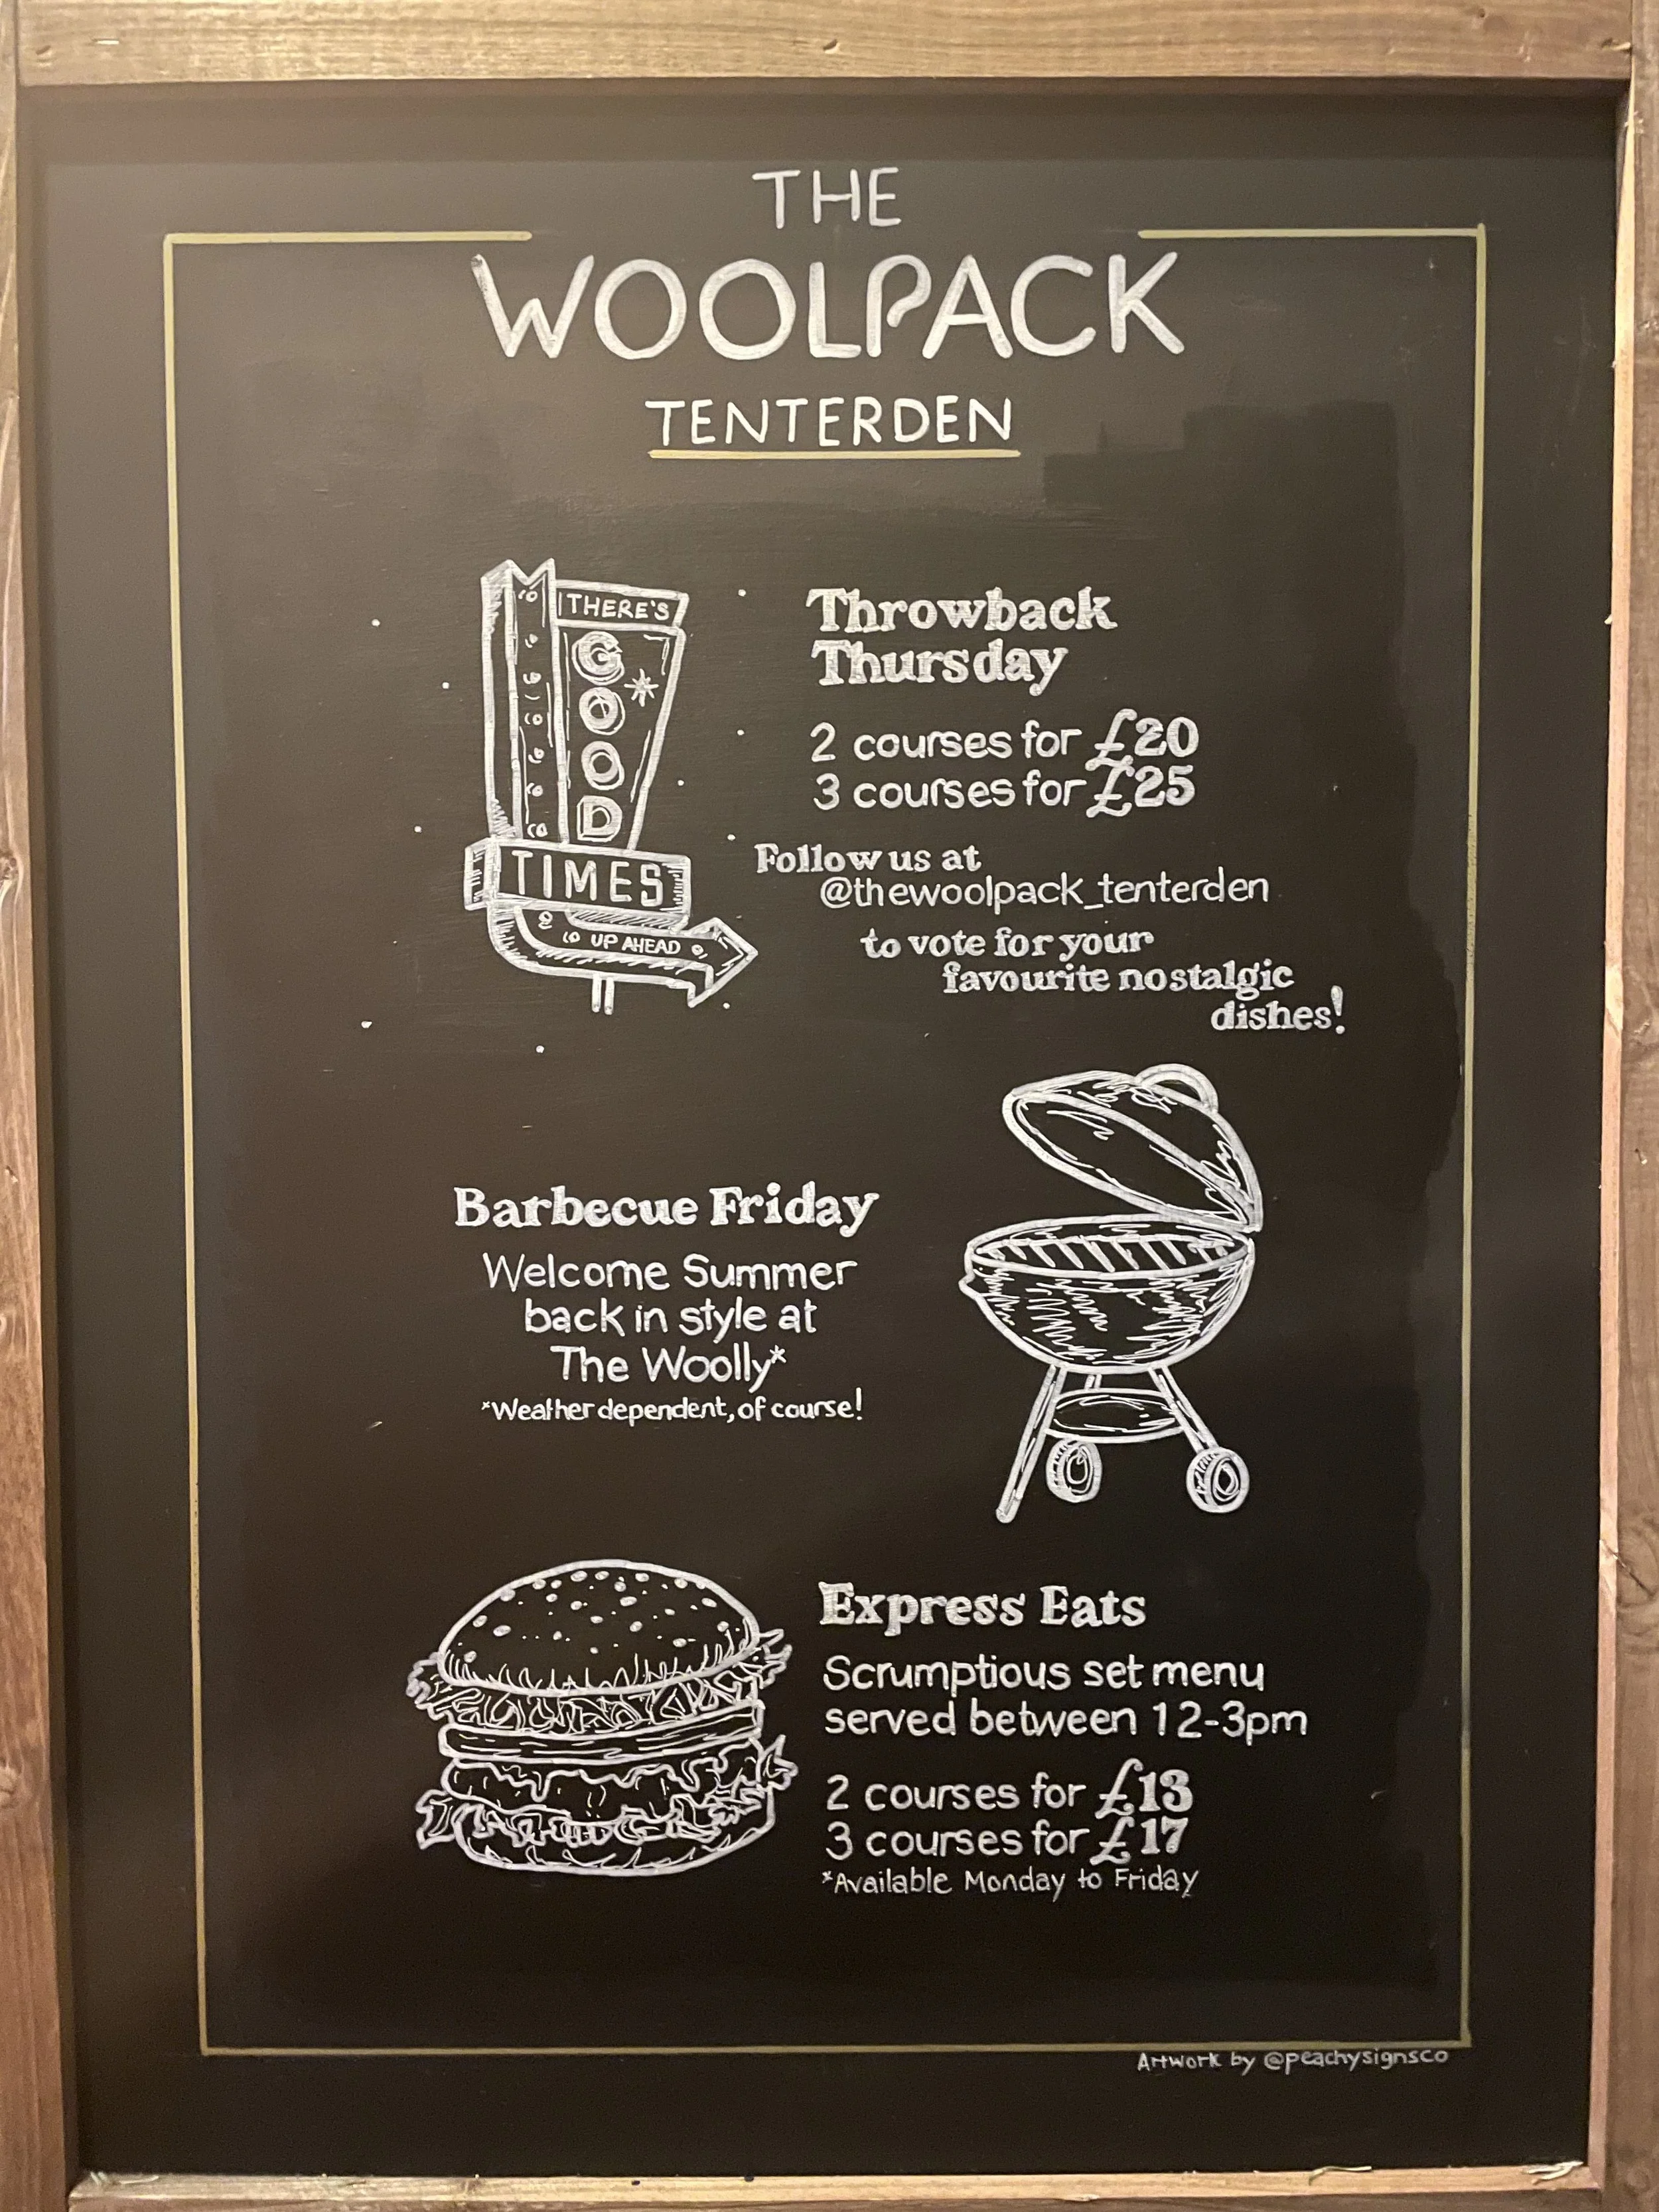 THE
WOOLPACK
TENTERDEN
THERE'S
GOOD
TIMES
UP AHEAD
Throwback
Thursday
2 courses for £20
3 courses for £25
Follow us at
@thewoolpack_tenterden
to vote for your
favourite nostalgic
dishes!
Barbecue Friday
Welcome Summer
back in style at
The Woolly*
*Weather dependent, of course!
Express Eats
Scrumptious set menu
served between 12-3pm
2 courses for £13
3 courses for £17
*Available Monday to Friday
Artwork by @peachysignsco